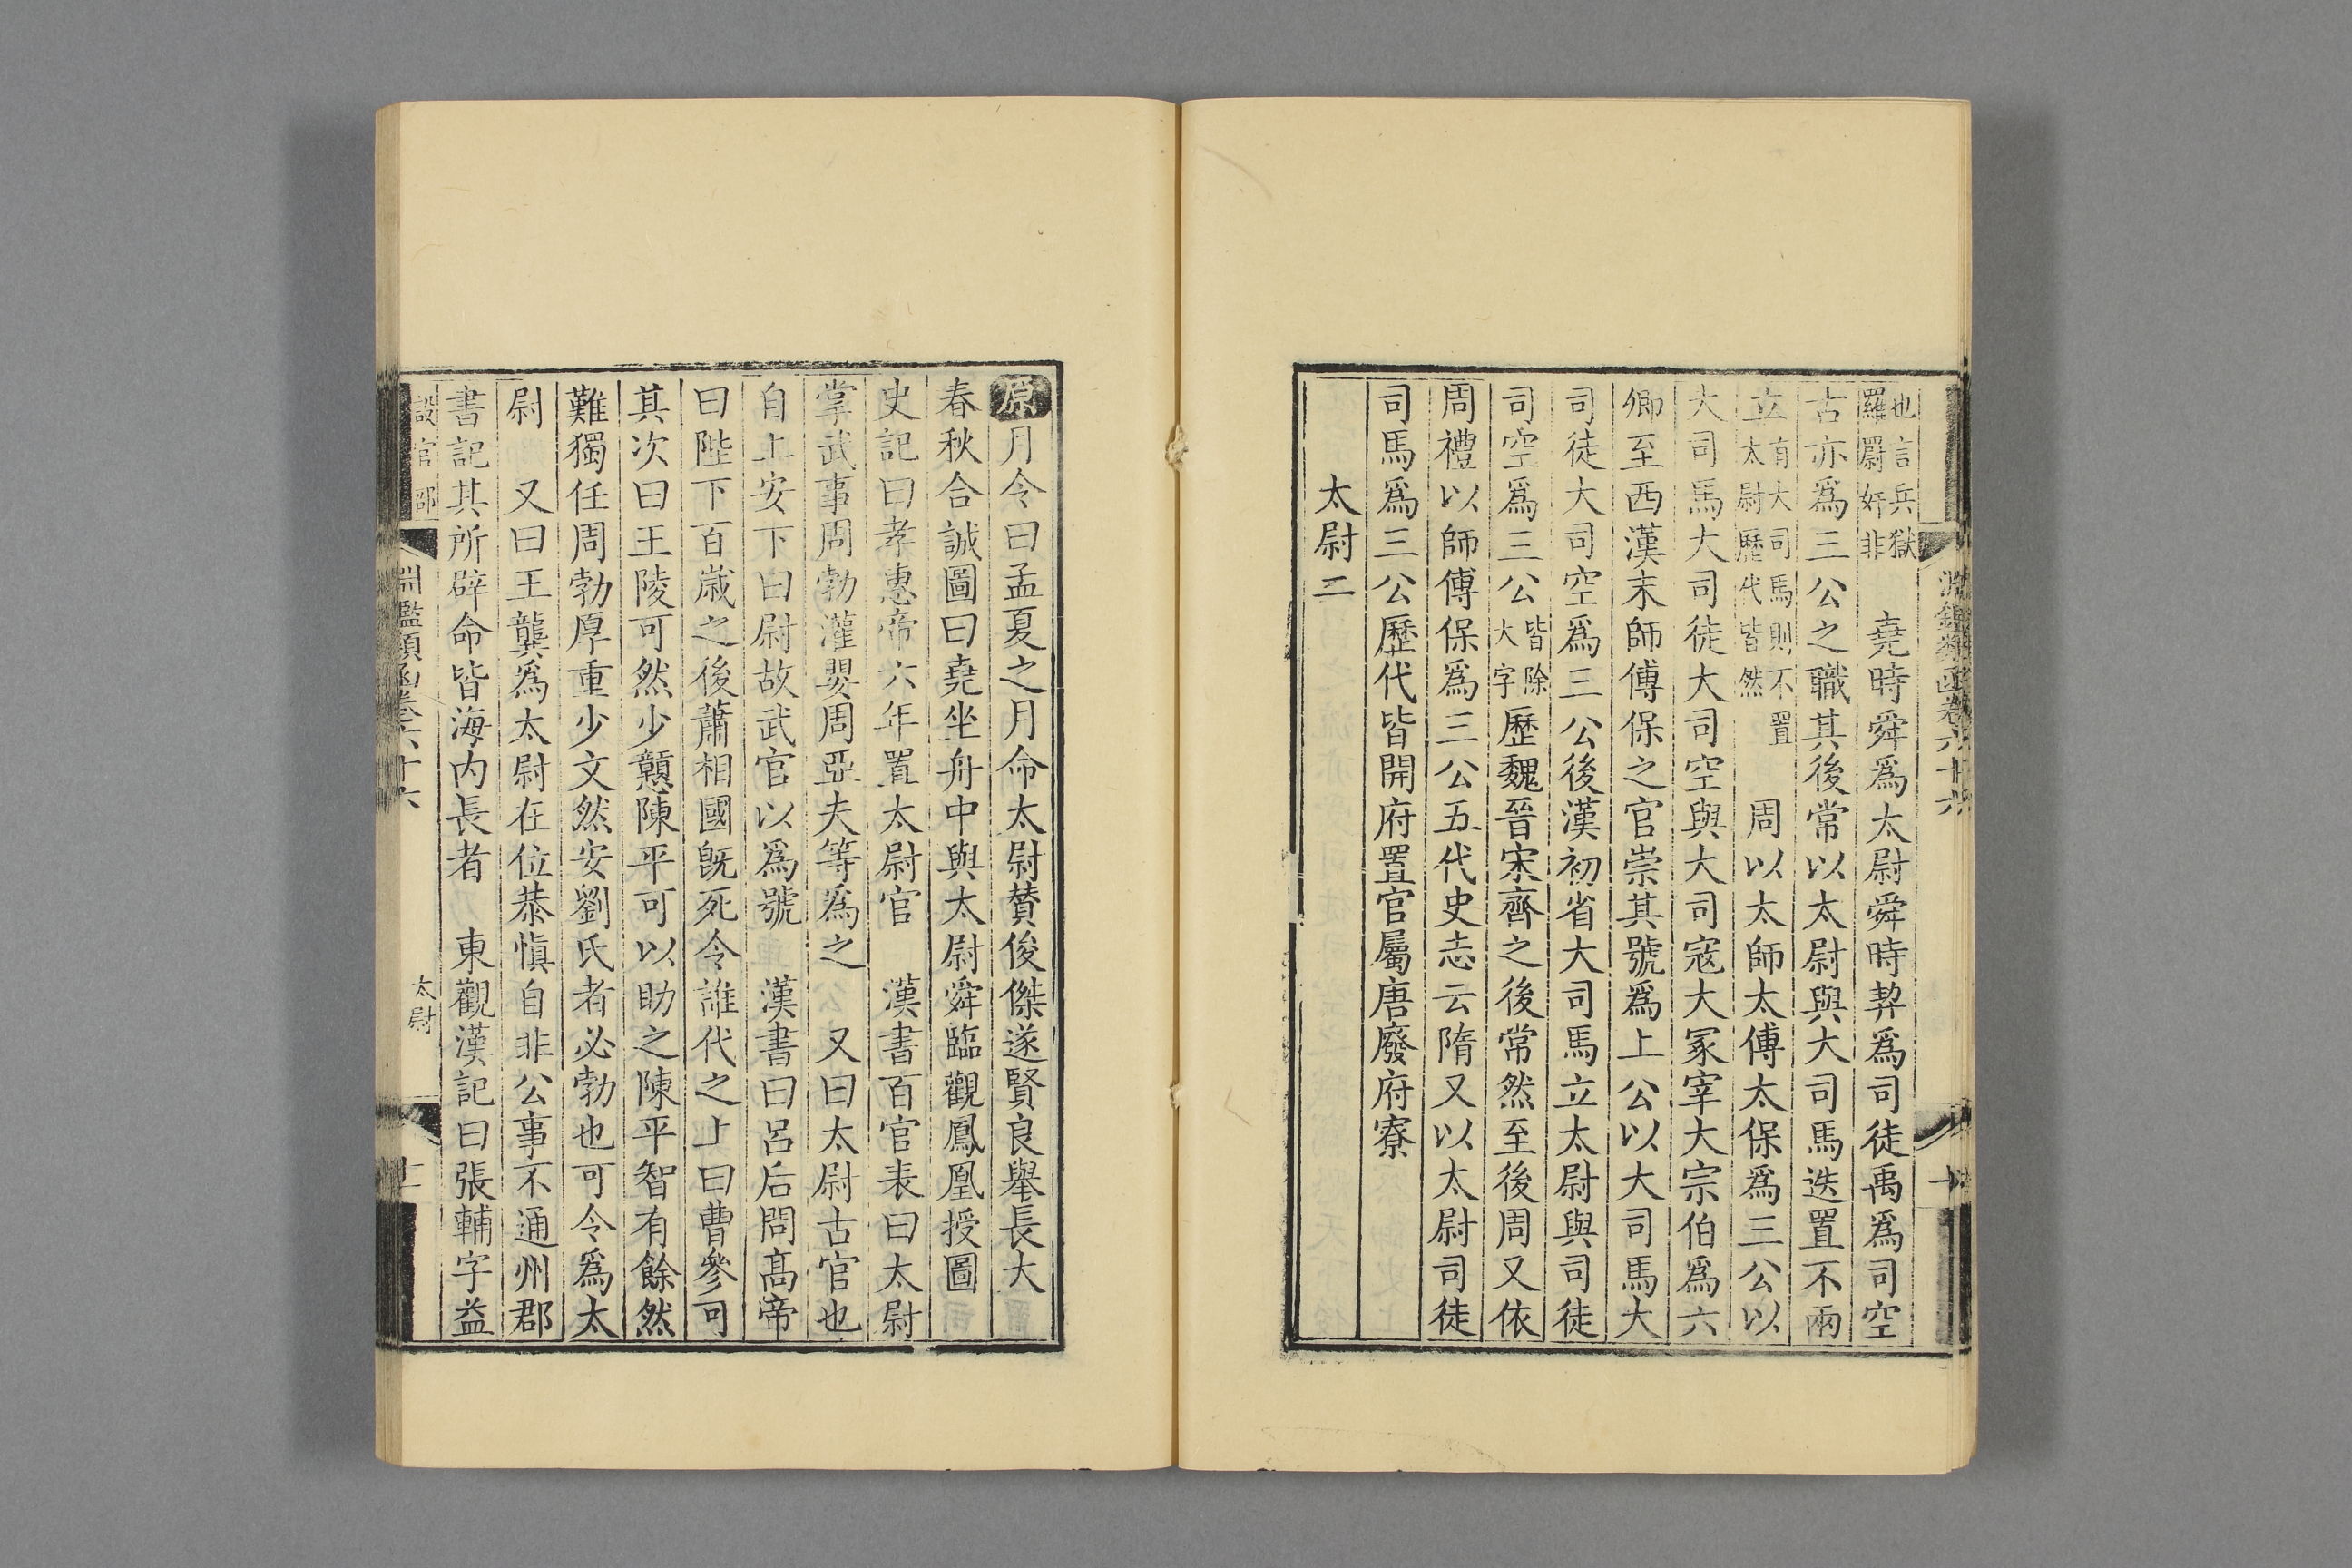 淵鑑類函卷六十六
也言兵獄羅罻奸非　堯時舜爲太尉舜時契爲司徒禹爲司空
古亦爲三公之職其後常以太尉與大司馬迭置不兩
立有大司馬則不置太尉歷代皆然　周以太師太傅太保爲三公以
大司馬大司徒大司空與大司寇大冢宰大宗伯爲六
卿至西漢末師傅保之官崇其號爲上公以大司馬大
司徒大司空爲三公後漢初省大司馬立太尉與司徒
司空爲三公皆除大字歷魏晉宋齊之後常然至後周又依
周禮以師傅保爲三公五代史志云隋又以太尉司徒
司馬爲三公歷代皆開府置官屬唐廢府寮
太尉二
原月令曰孟夏之月命太尉贊俊傑遂賢良舉長大
春秋合誠圖曰堯坐舟中與太尉舜臨觀鳳凰授圖
史記曰孝惠帝六年置太尉官　漢書百官表曰太尉
掌武事周勃灌嬰周亞夫等爲之　又曰太尉古官也
自上安下曰尉故武官以爲號　漢書曰呂后問高帝
曰陛下百歲之後蕭相國旣死令誰代之上曰曹參可
其次曰王陵可然少戇陳平可以助之陳平智有餘然
難獨任周勃厚重少文然安劉氏者必勃也可令爲太
尉　又曰王龔爲太尉在位恭愼自非公事不通州郡
書記其所辟命皆海內長者　東觀漢記曰張輔字益
設官部
淵鑑類函卷六十六
太尉